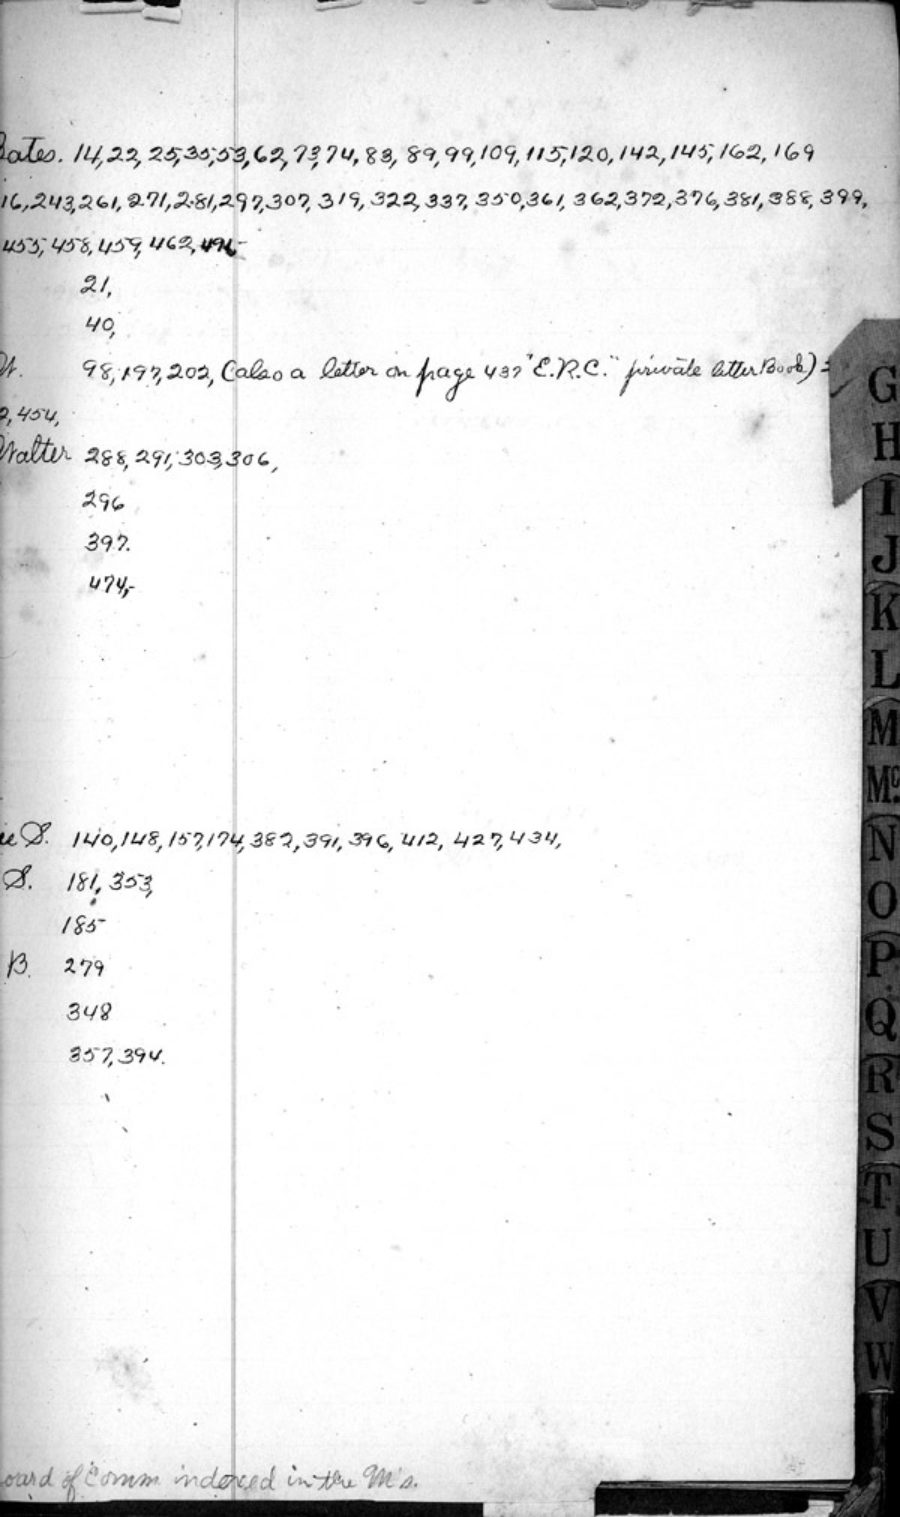 ates. 14, 22, 25, 35, 53, 62, 73, 74, 83, 89, 99, 109, 115, 120, 142, 145, 162, 169
16, 243, 261, 271, 281, 297, 307, 319, 322, 337, 350, 361, 362, 372, 376, 381, 388, 399,
455, 458, 459, 462,
21,
40,
W. 98, 197, 202, (also a letter on page 437 "E.R.C." private letter Book)
2, 454,
Walter 288, 291, 303, 306,
296
397.
474,-
ie S. 140, 148, 157, 174, 382, 391, 396, 412, 427, 434,
S. 181, 353,
185
B. 279
348
357, 394.
oard of Comm indexed in the M's.
G
H
I
J
K
L
M
Mc.
N
O
P
Q
R
S
T
U
V
W